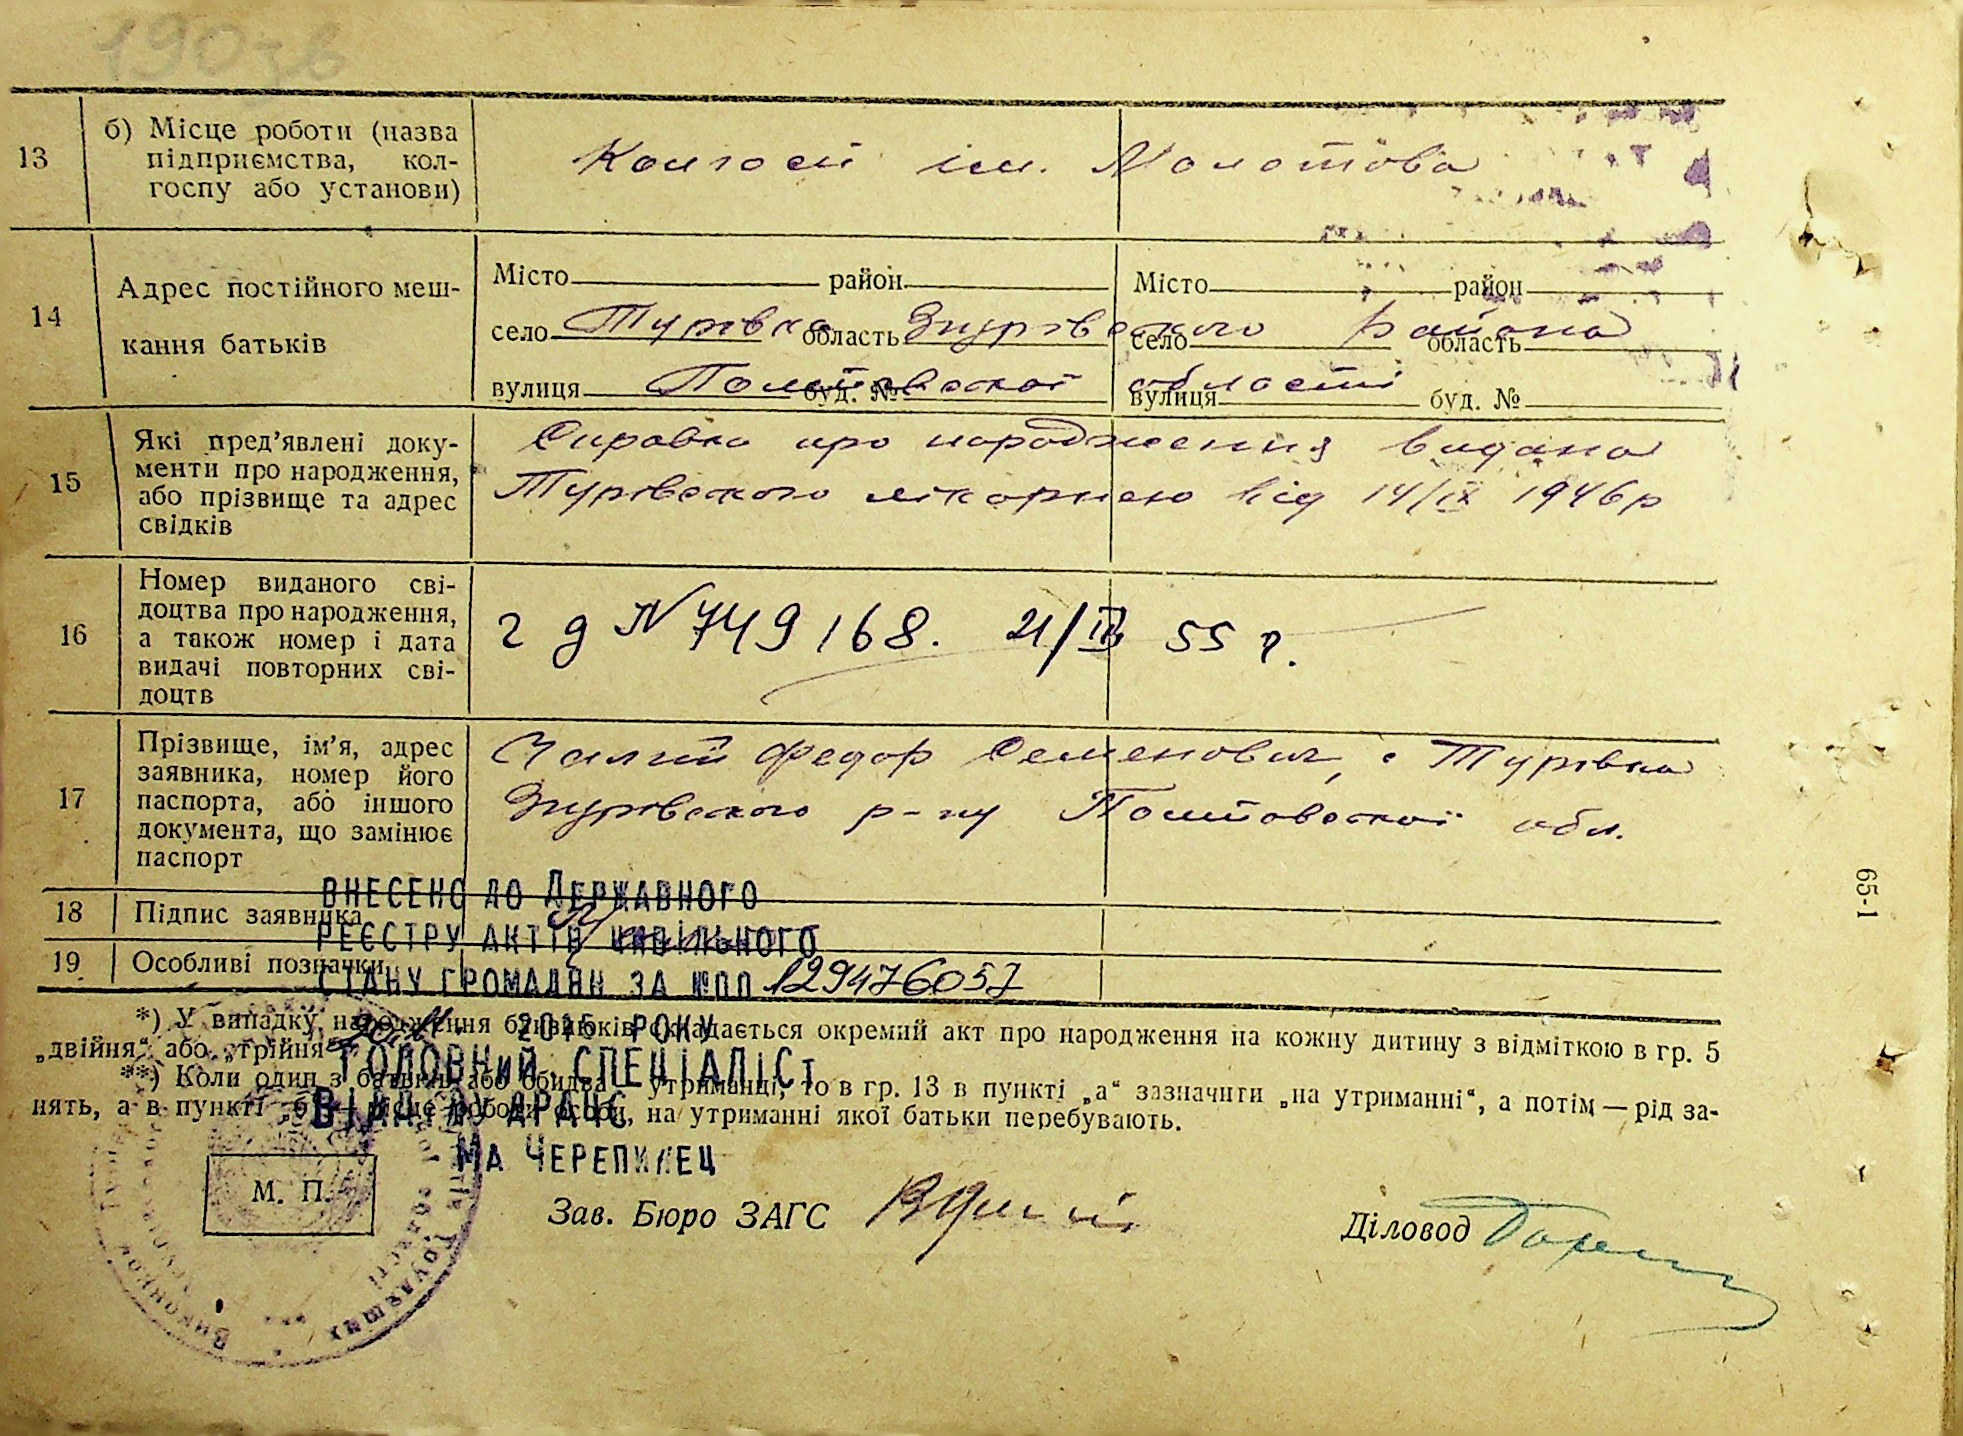 190зв
13
б) Місце роботи (назва
підприємства, кол-
госпу або установи)
Колгосп ім. Молотова
14
Адрес постійного меш-
кання батьків
Місто район Місто район
село Турівка область Згурівського село Района область
вулиця Полтавської буд. № області вулиця буд. №
15
Які пред’явлені доку-
менти про народження,
або прізвище та адрес
свідків
Справка про народження видана
Турівською лікарнею від 14/IX 1946р
16
Номер виданого сві-
доцтва про народження,
а також номер і дата
видачі повторних сві-
доцтв
г д № 749168. 21/IV 55 г.
17
Прізвище, ім’я, адрес
заявника, номер його
паспорта, або іншого
документа, що замінює
паспорт
Чалий Федор Семенович, с Турівка
Згурівського р-ну Полтавської обл.
18 Підпис заявника
19 Особливі позначки
ВНЕСЕНО ДО ДЕРЖАВНОГО
РЕЄСТРУ АКТІВ ЦИВІЛЬНОГО
СТАНУ ГРОМАДЯН ЗА №ПП 129476057
2015 РОКУ
ГОЛОВНИЙ СПЕЦІАЛІСТ
ВІДДІЛУ ДРАЦС
МА ЧЕРЕПИНЕЦ
*) У випадку народження близнюків складається окремий акт про народження на кожну дитину з відміткою в гр. 5
„двійня“ або „трійня“
**) Коли один з батьків або обидва утриманці, то в гр. 13 в пункті „а“ зазначити „на утриманні“, а потім — рід за-
нять, а в пункті „б“ — місце роботи особи, на утриманні якої батьки перебувають.
М. П.
Зав. Бюро ЗАГС
Діловод
65-1